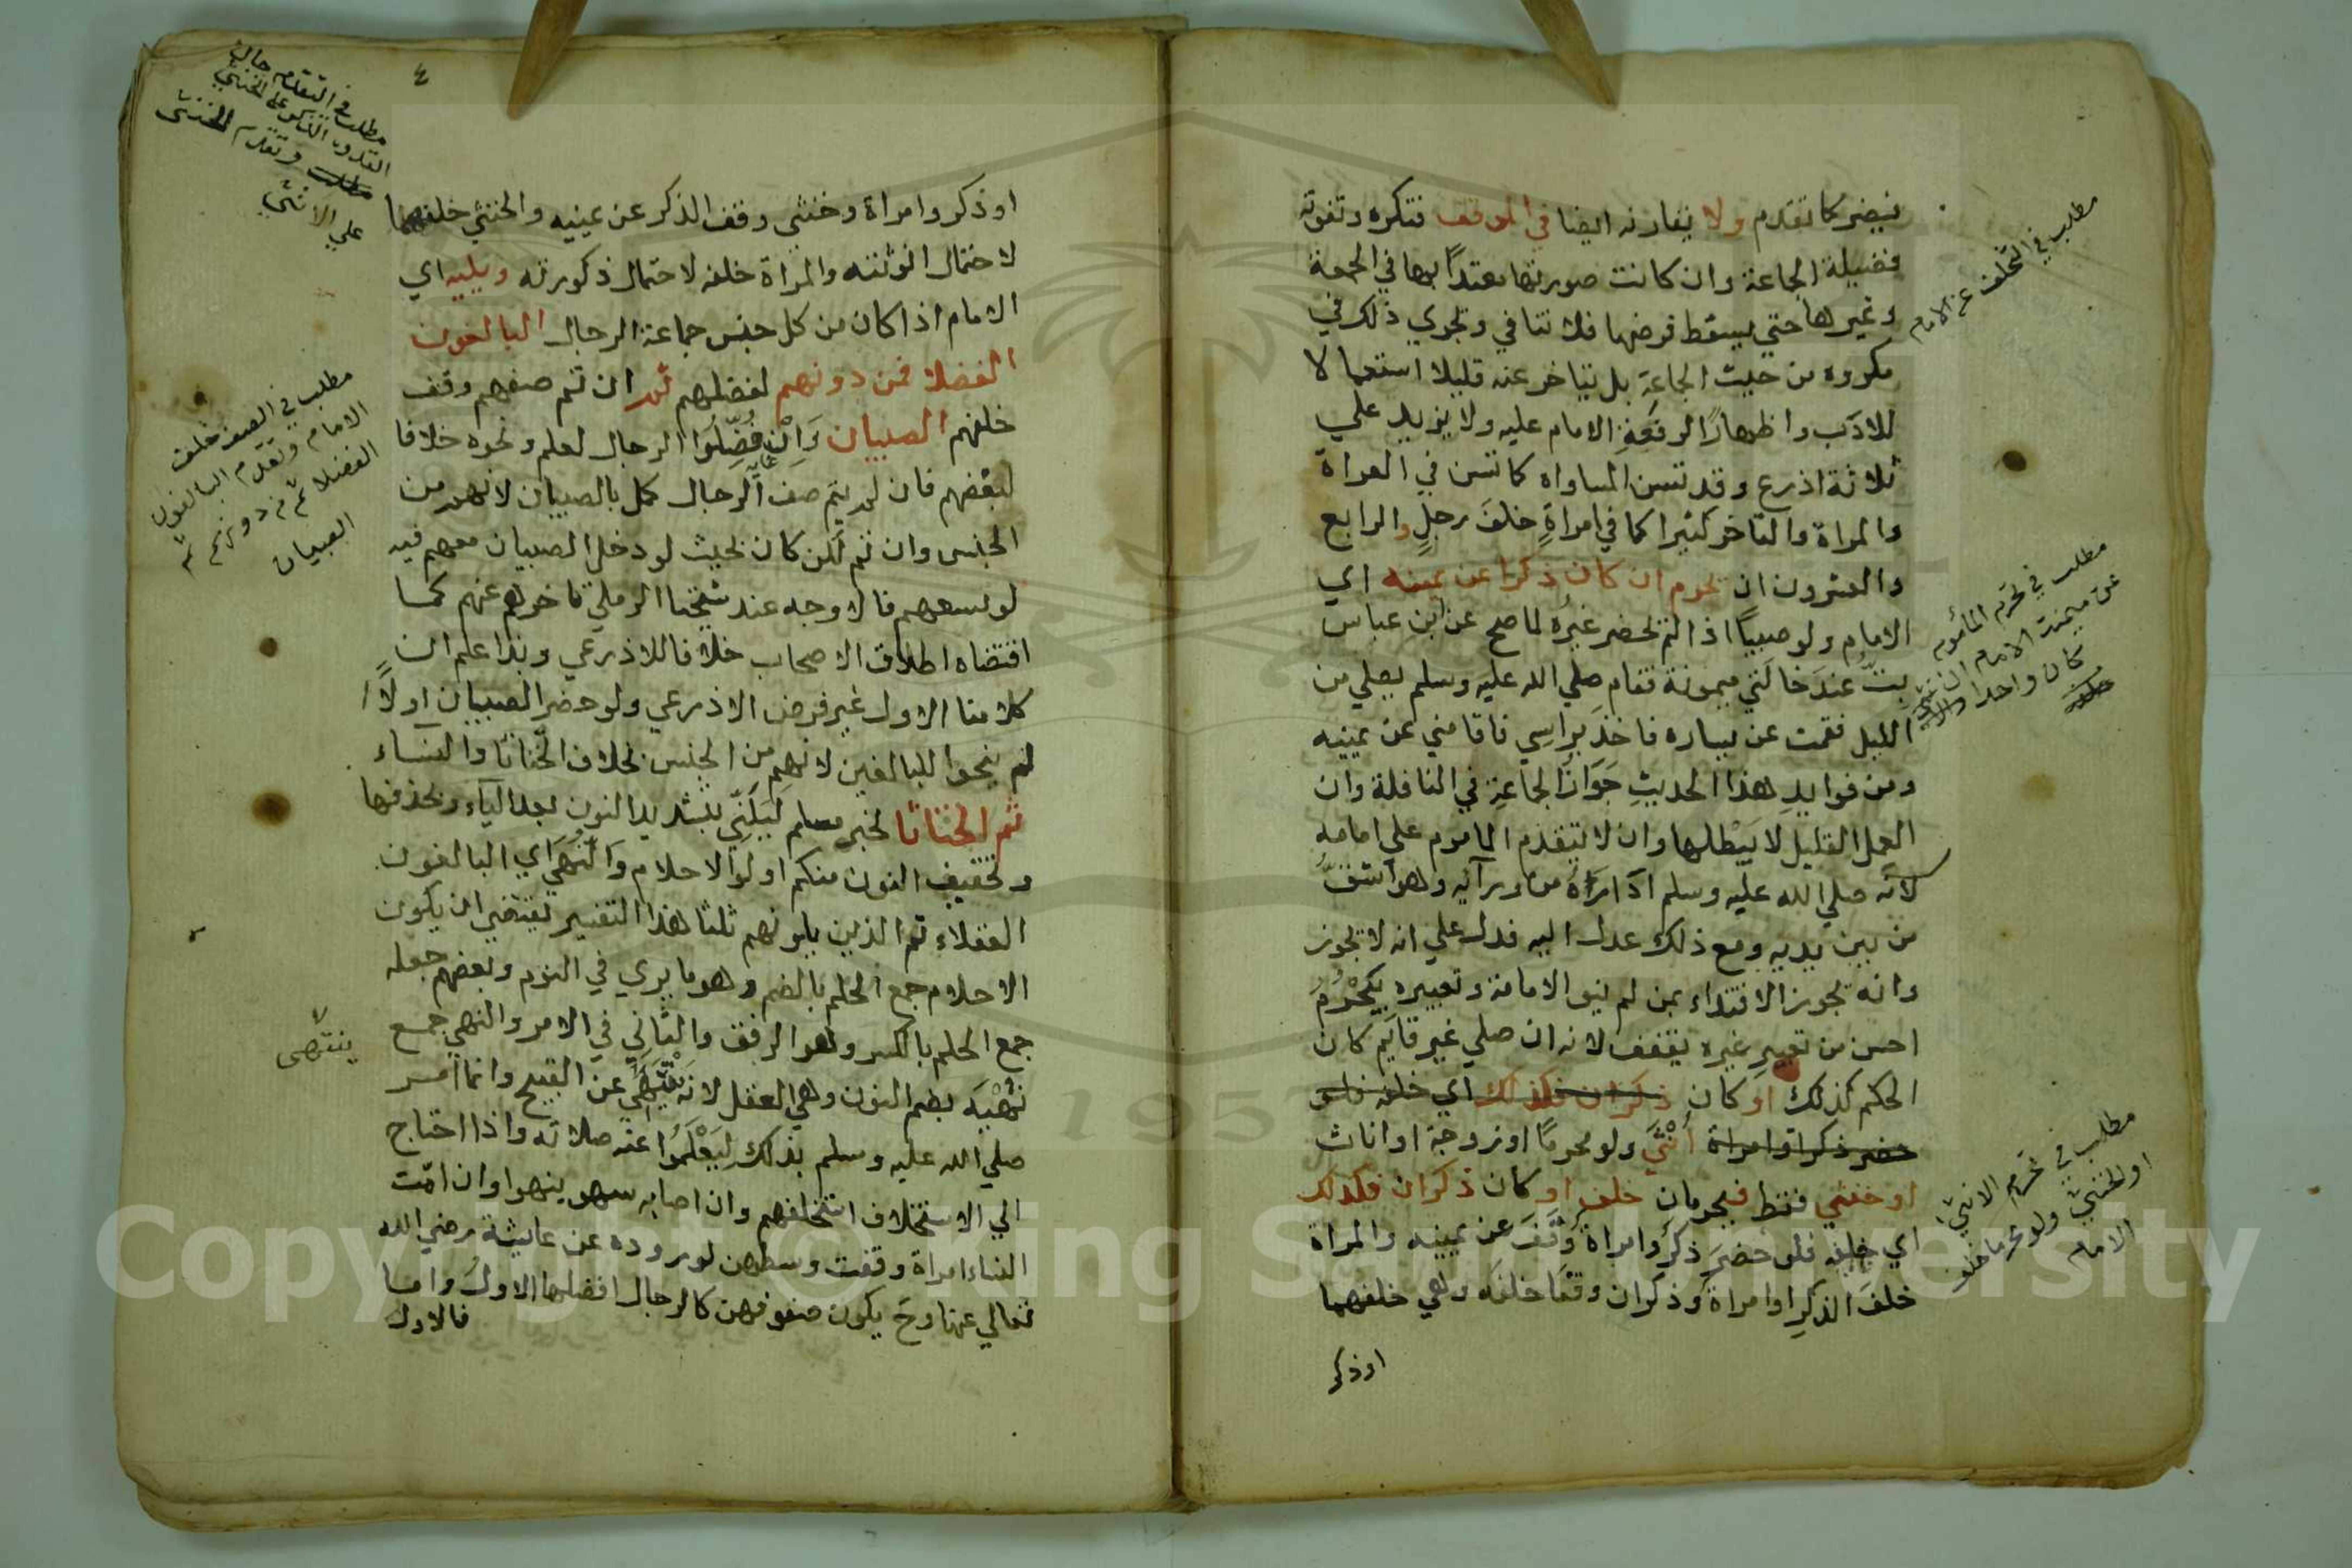 فيضر كما تقدم ولا يقارنه ايضا في الموقف فتكره وتفوته
فضيلة الجماعة وان كانت صورتها معتدا بها في الجمعة
وغيرها حتي يسقط فرضها فلا تنافي ويجري ذلك في
مكروه من حيث الجماعة بل يتاخر عنه قليلا استعمالا
للادب واظهارا لرفعة الامام عليه ولا يزيد علي
ثلاثة اذرع وقد تسن المساواه كما تسن في العراة
والمراة والتاخر كثيرا كما في امراة خلف رجل والرابع
والعشرون ان يحرم ان كان ذكرا عن يمينه اي
الامام ولو صبيا اذا لم يحضر غيره لما صح عن ابن عباس
بت عند خالتي ميمونة فقام صلي الله عليه وسلم يصلي من
الليل فقمت عن يساره فاخذ براسي فاقامني عن يمينه
ومن فوايد هذا الحديث جواز الجماعة في النافلة وان
العمل القليل لا يبطلها وان لا يتقدم الماموم علي امامه
لانه صلي الله عليه وسلم اداره من ورآيه وهو اشق
من بين يديه ومع ذلك عدل اليه فدل علي انه لا يجوز
وانه يجوز الاقتداء بمن لم ينو الامامة وتعبيره بيحرم
احسن من تعبير غيره بيقف لانه ان صلي غير قايم كان
الحكم كذلك او كان ذكران فكذلك اي خلفه فلو
حضر ذكر او امراة أنثي ولو محرما او زوجة او اناث
او خنثي فقط فيحرمان خلفه او كان ذكران فكذلك
اي خلفه فلو حضر ذكر وامراة وقف عن يمينه والمراة
خلف الذكر او امراة وذكران وقفا خلفه وهي خلفهما
او ذكر
مطلب في التخلف عن الامام
مطلب في تحرم المأموم
عن ميمنة الامام ان
كان واحدا
خلفه
مطلب في تحرم الانثي
او الخنثي ولو محرما خلف
الامام
٤
او ذكر وامراة وخنثي وقف الذكر عن يمينه والخنثي خلفهما
لاحتمال انوثته والمراة خلفه لاحتمال ذكورته ويليه اي
الامام اذا كان من كل جنس جماعة الرجال البالغون
الفضلا فمن دونهم لفضلهم ثم ان تم صفهم وقف
خلفهم الصبيان وان فضلوا الرجال لعلم ونحوه خلافا
لبعضهم فان لم يتم صف الرجال كمل بالصبيان لانهم من
الجنس وان تم لكن كان بحيث لو دخل الصبيان معهم فيه
لوسعهم فالاوجه عند شيخنا الرملي تاخرهم عنهم كما
اقتضاه اطلاق الاصحاب خلافا للاذرعي وبذا علم ان
كلامنا الاول غير فرض الاذرعي ولو حضر الصبيان اولا
لم ينحوا للبالغين لانهم من الجنس بخلاف الخناثا والنساء
ثم الخناثا لخبر مسلم ليلني بتشديد النون بعد الياء وبحذفها
وتخفيف النون منكم اولوا الاحلام والنهي اي البالغون
العقلاء ثم الذين يلونهم ثلثا هذا التفسير يقتضي ان يكون
الاحلام جمع الحلم بالضم وهو ما يري في النوم وبعضهم جعله
جمع الحلم بالكسر وهو الرفق والثاني في الامر والنهي جمع
نهيه بضم النون وهي العقل لانه ينتهي عن القبيح وانما امر
صلي الله عليه وسلم بذلك ليعلموا عنه صلاته واذا احتاج
الي الاستخلاف استخلفهم وان اصابه سهو ينبهوا وان امت
النساء امراة وقفت وسطهن لوروده عن عايشة رضي الله
تعالي عنها وح يكون صفوفهن كالرجال افضلها الاول واما
فالاول
مطلب في التقدم حال
القدوة الذكر علي الخنثي
مطلب وتقدم الخنثي
علي الانثي
مطلب في الصف خلف
الامام وتقدم البالغون
الفضلا ثم من دونهم ثم
الصبيان
ينتهى
Copyright © King Saud University
1957